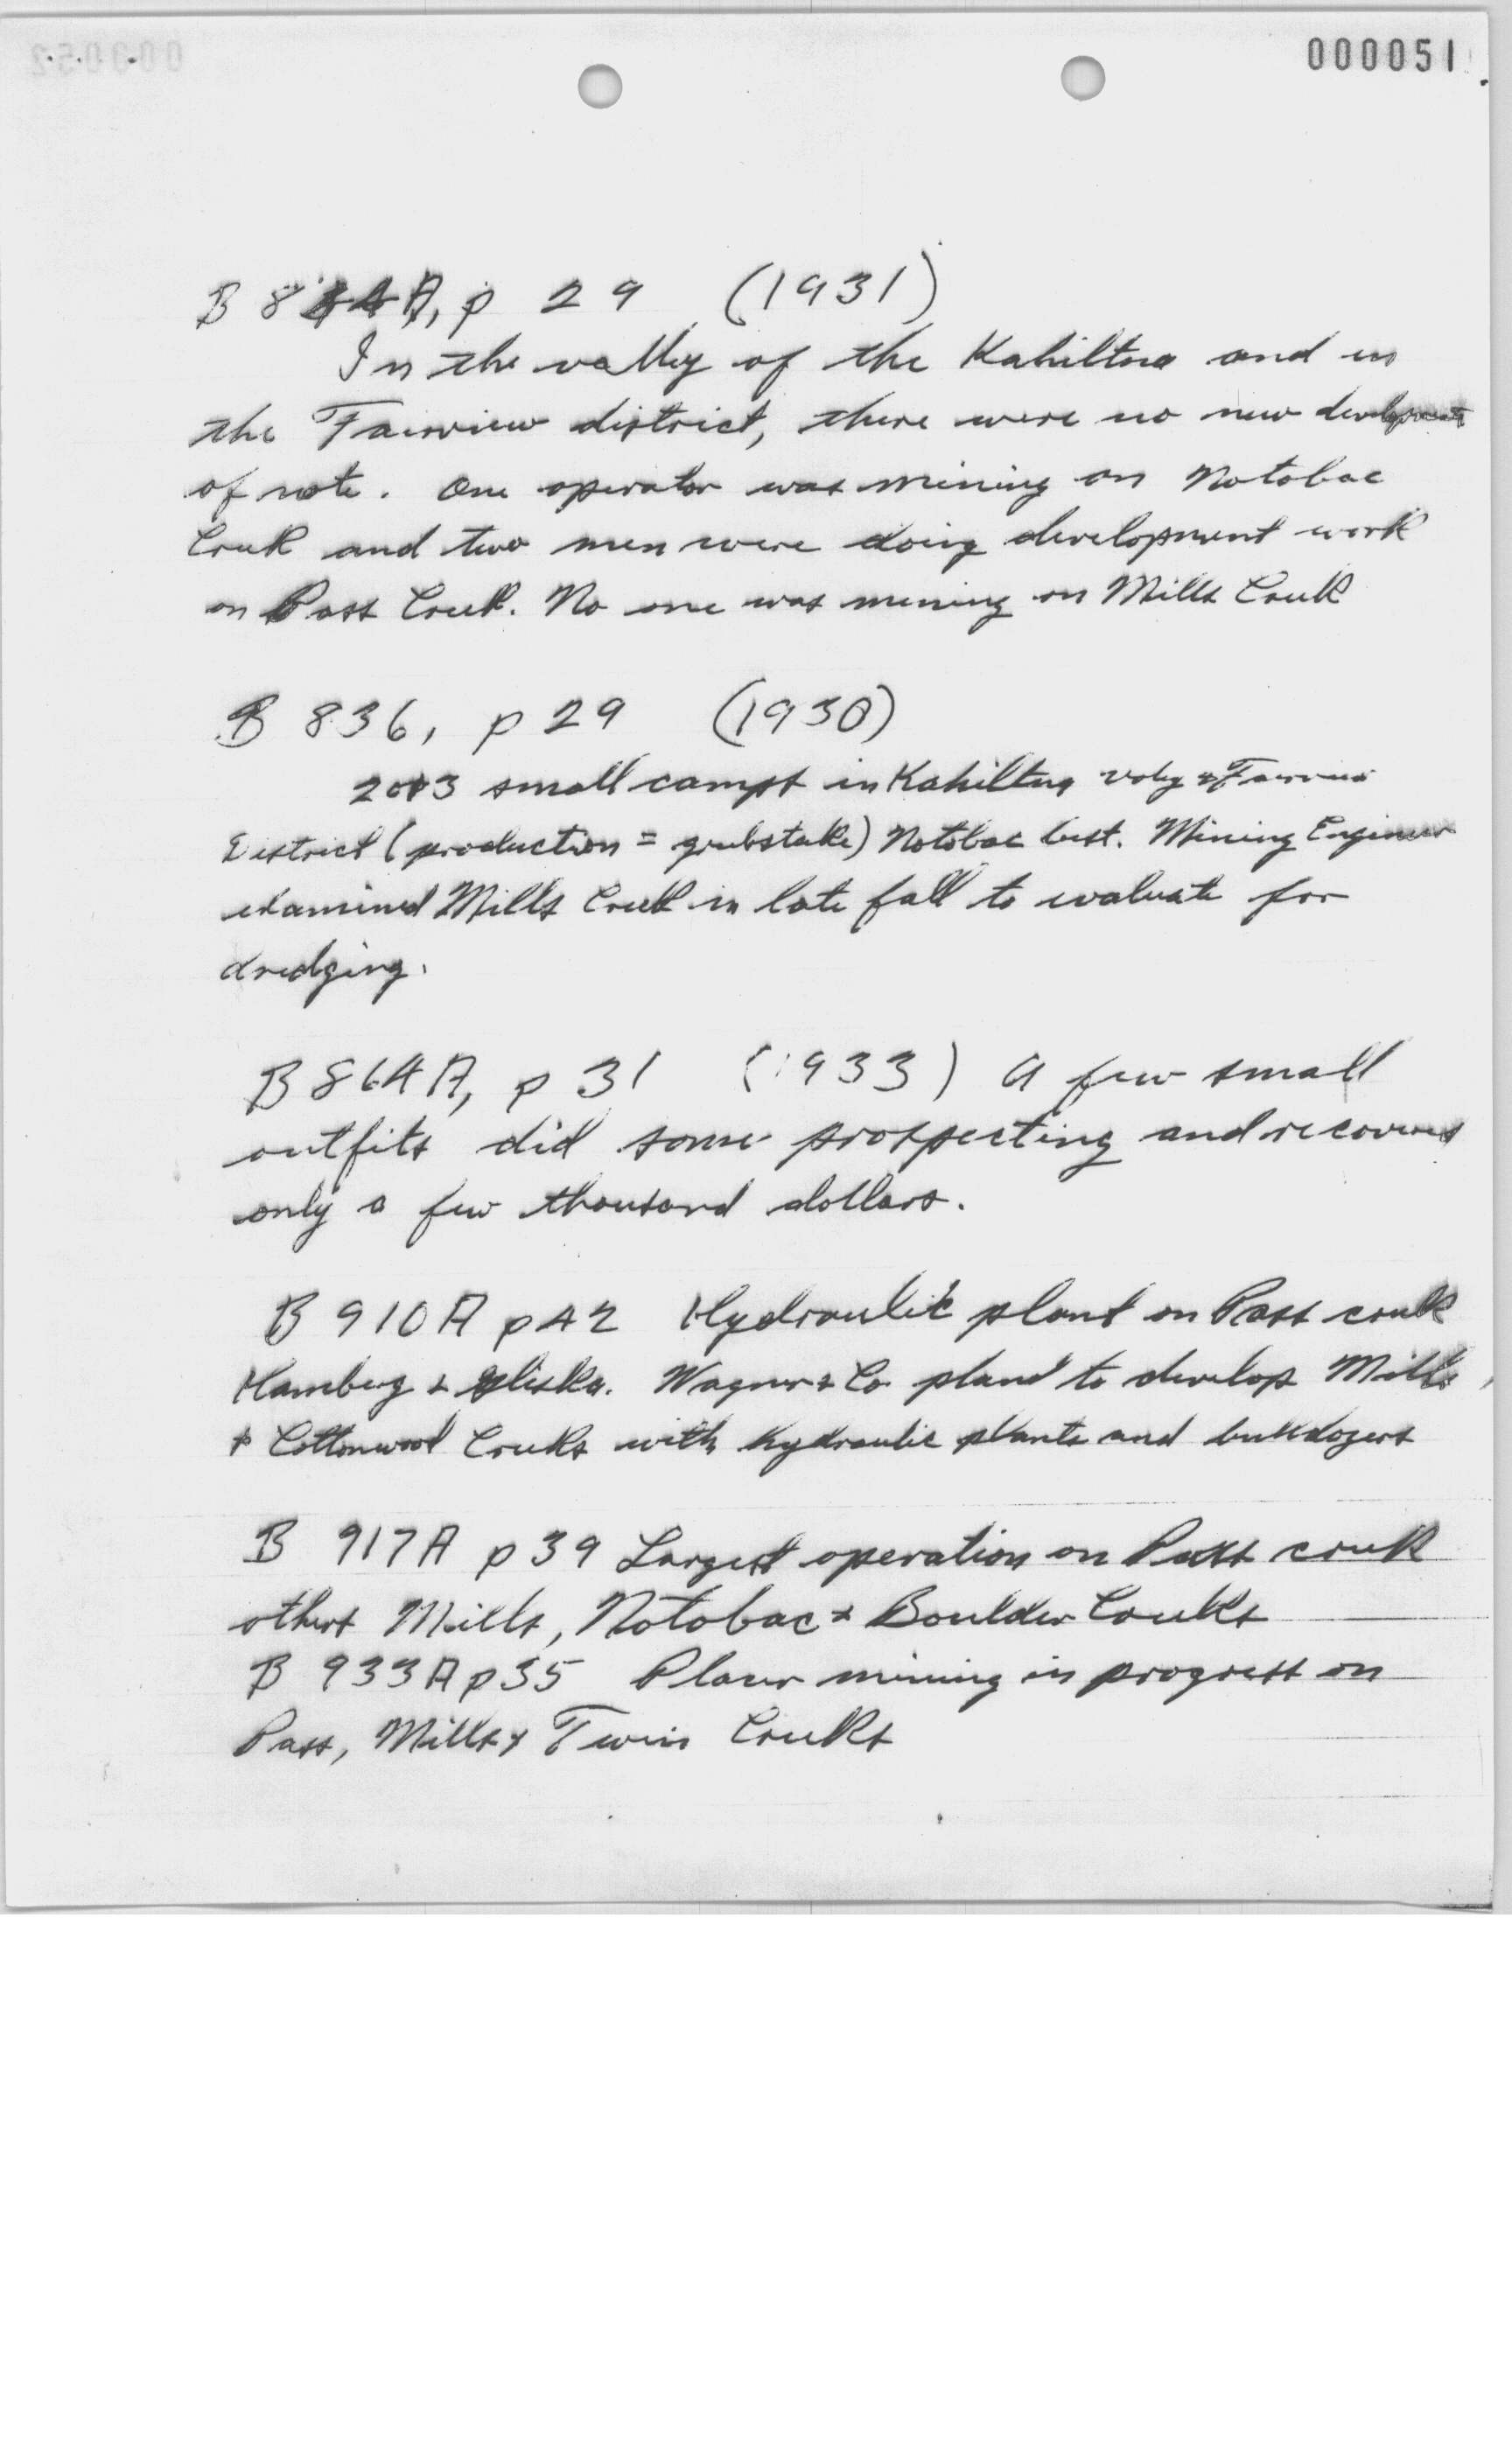 000051
B 844A, p 29 (1931)
In the valley of the Kahiltna and in
the Fairview district, there were no new developments
of note. One operator was mining on Notobac
Creek and two men were doing development work
on Pass Creek. No one was mining on Mills Creek
B 836, p 29 (1930)
2 or 3 small camps in Kahiltna valley & Fairview
District (production = grubstake) Notobac best. Mining Engineer
examined Mills Creek in late fall to evaluate for
dredging.
B 864A, p 31 (1933) A few small
outfits did some prospecting and recovered
only a few thousand dollars.
B 910A p 42 Hydraulic plant on Pass creek
Hamberg & Wagner & Co plan to develop Mills
& Cottonwood Creeks with hydraulic plants and bulldozers
B 917A p 39 Largest operation on Pass creek
others Mills, Notobac & Boulder Creeks
B 933A p 35 Placer mining in progress on
Pass, Mills & Twin Creeks